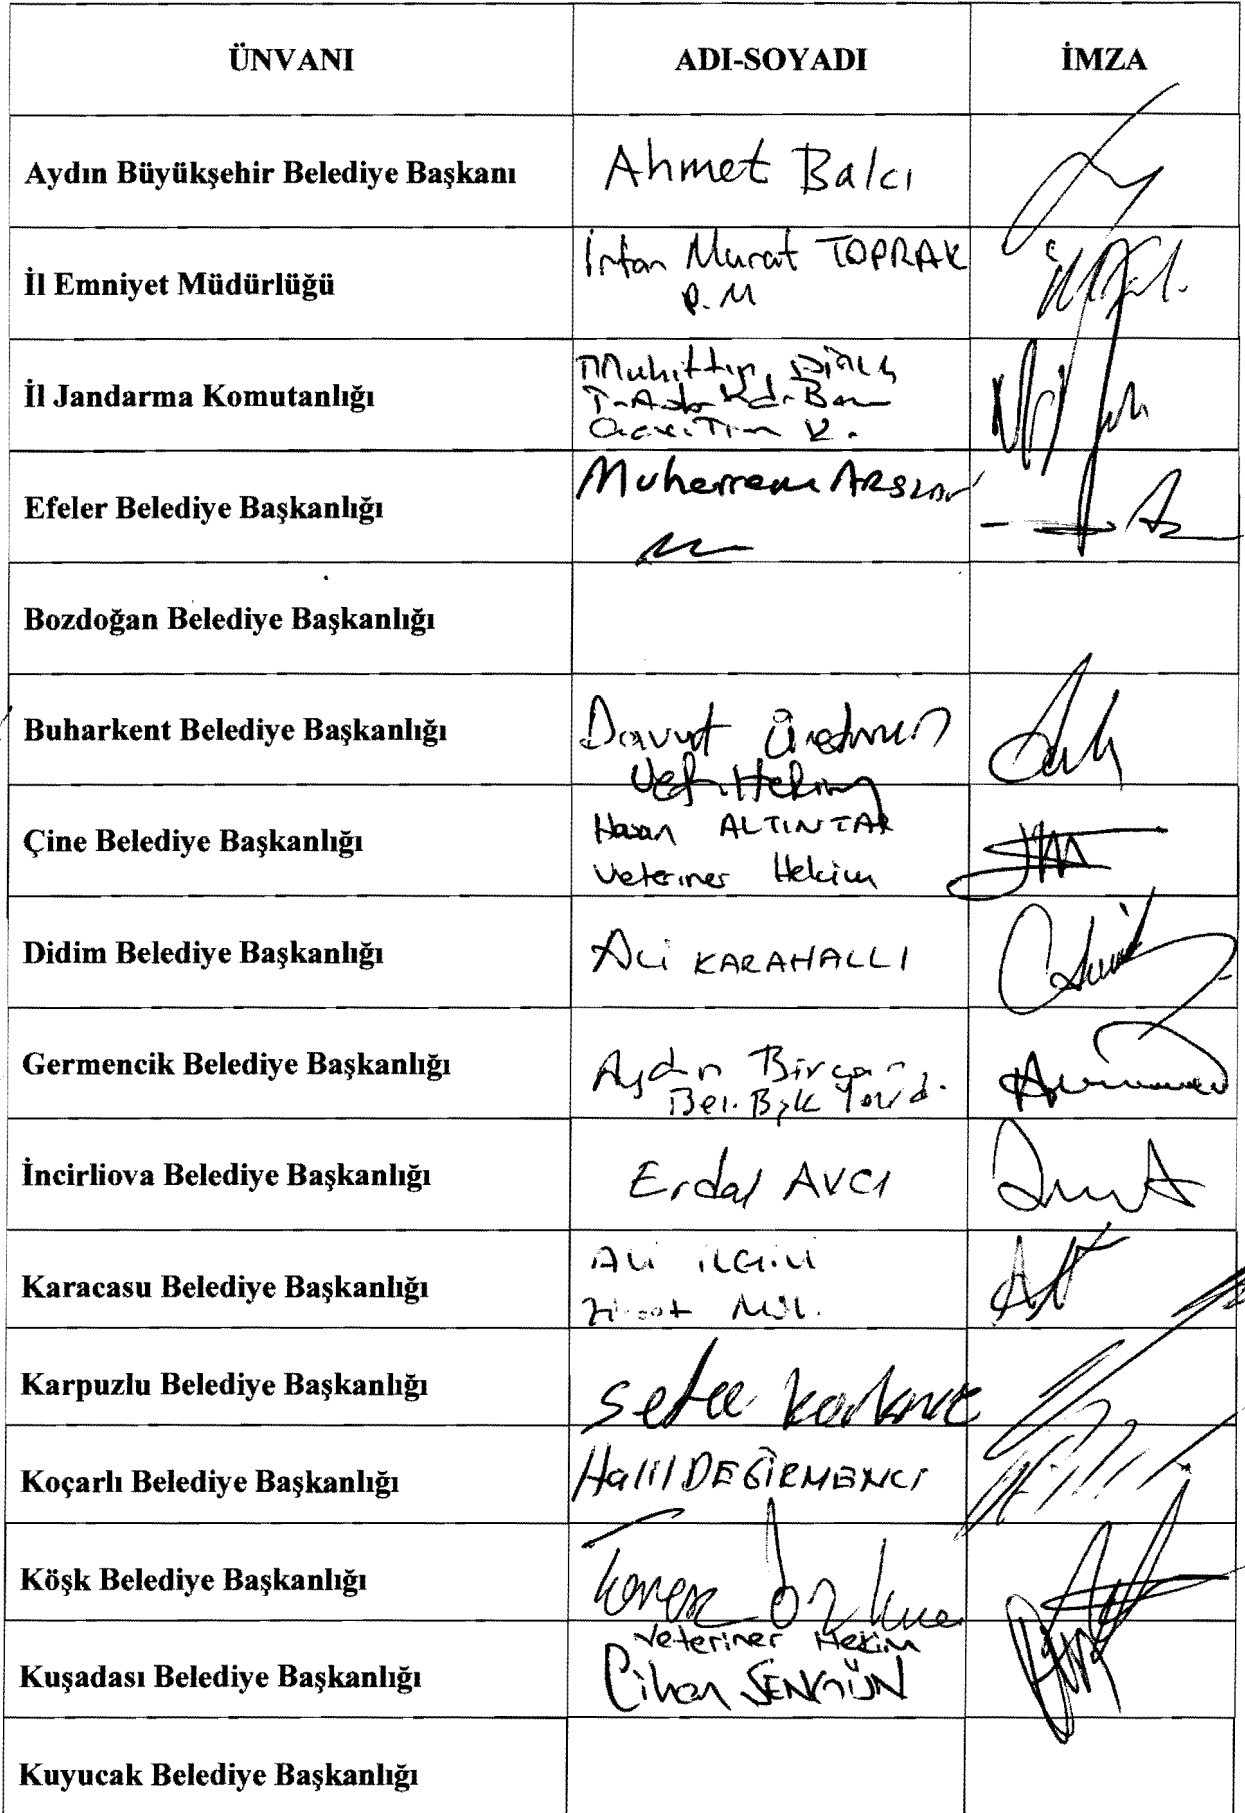 ÜNVANI ADI-SOYADI İMZA
Aydın Büyükşehir Belediye Başkanı Ahmet Balcı
İl Emniyet Müdürlüğü
İrfan Murat TOPRAK
P.M
İl Jandarma Komutanlığı
Muhittin
Efeler Belediye Başkanlığı
Muharrem ARSLAN
Bozdoğan Belediye Başkanlığı
Buharkent Belediye Başkanlığı
Davut
Vet. Hekim
Çine Belediye Başkanlığı
Hasan ALTINTAR
Veteriner Hekim
Didim Belediye Başkanlığı Ali KARAHALLI
Germencik Belediye Başkanlığı
Aydın Bircan
Bel. Bşk Yard.
İncirliova Belediye Başkanlığı Erdal AVCI
Karacasu Belediye Başkanlığı
Ali İLGİLİ
Ziraat Müh.
Karpuzlu Belediye Başkanlığı
Koçarlı Belediye Başkanlığı Halil DEĞİRMENCİ
Köşk Belediye Başkanlığı
Kuşadası Belediye Başkanlığı
Veteriner Hekim
Cihan ŞENGÜN
Kuyucak Belediye Başkanlığı